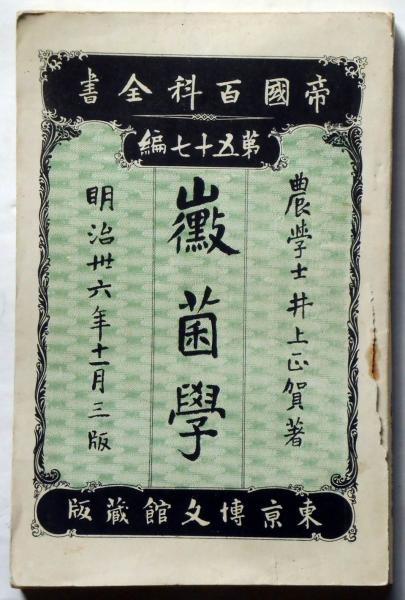 帝國百科全書
第五十七編
農學士井上正賀著
黴菌學
明治卅六年十一月三版
東京博文館蔵版